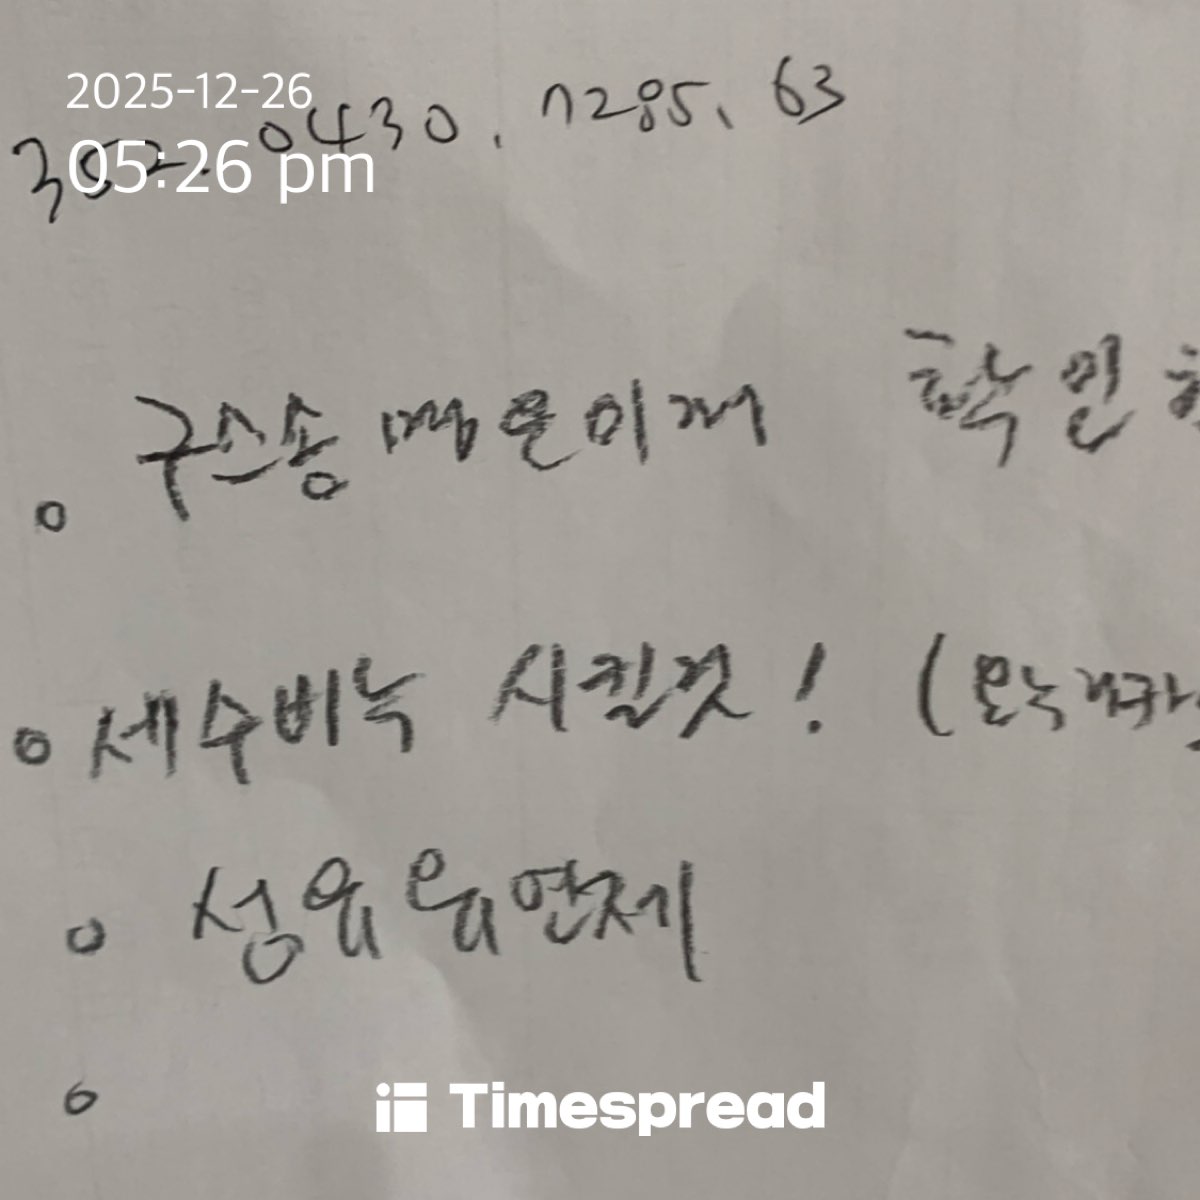 2025-12-26
05:26 pm
352. 0430. 7285. 63
구스송 이게 확인
세수비누 시킬것! (
섬유유연제
Timespread